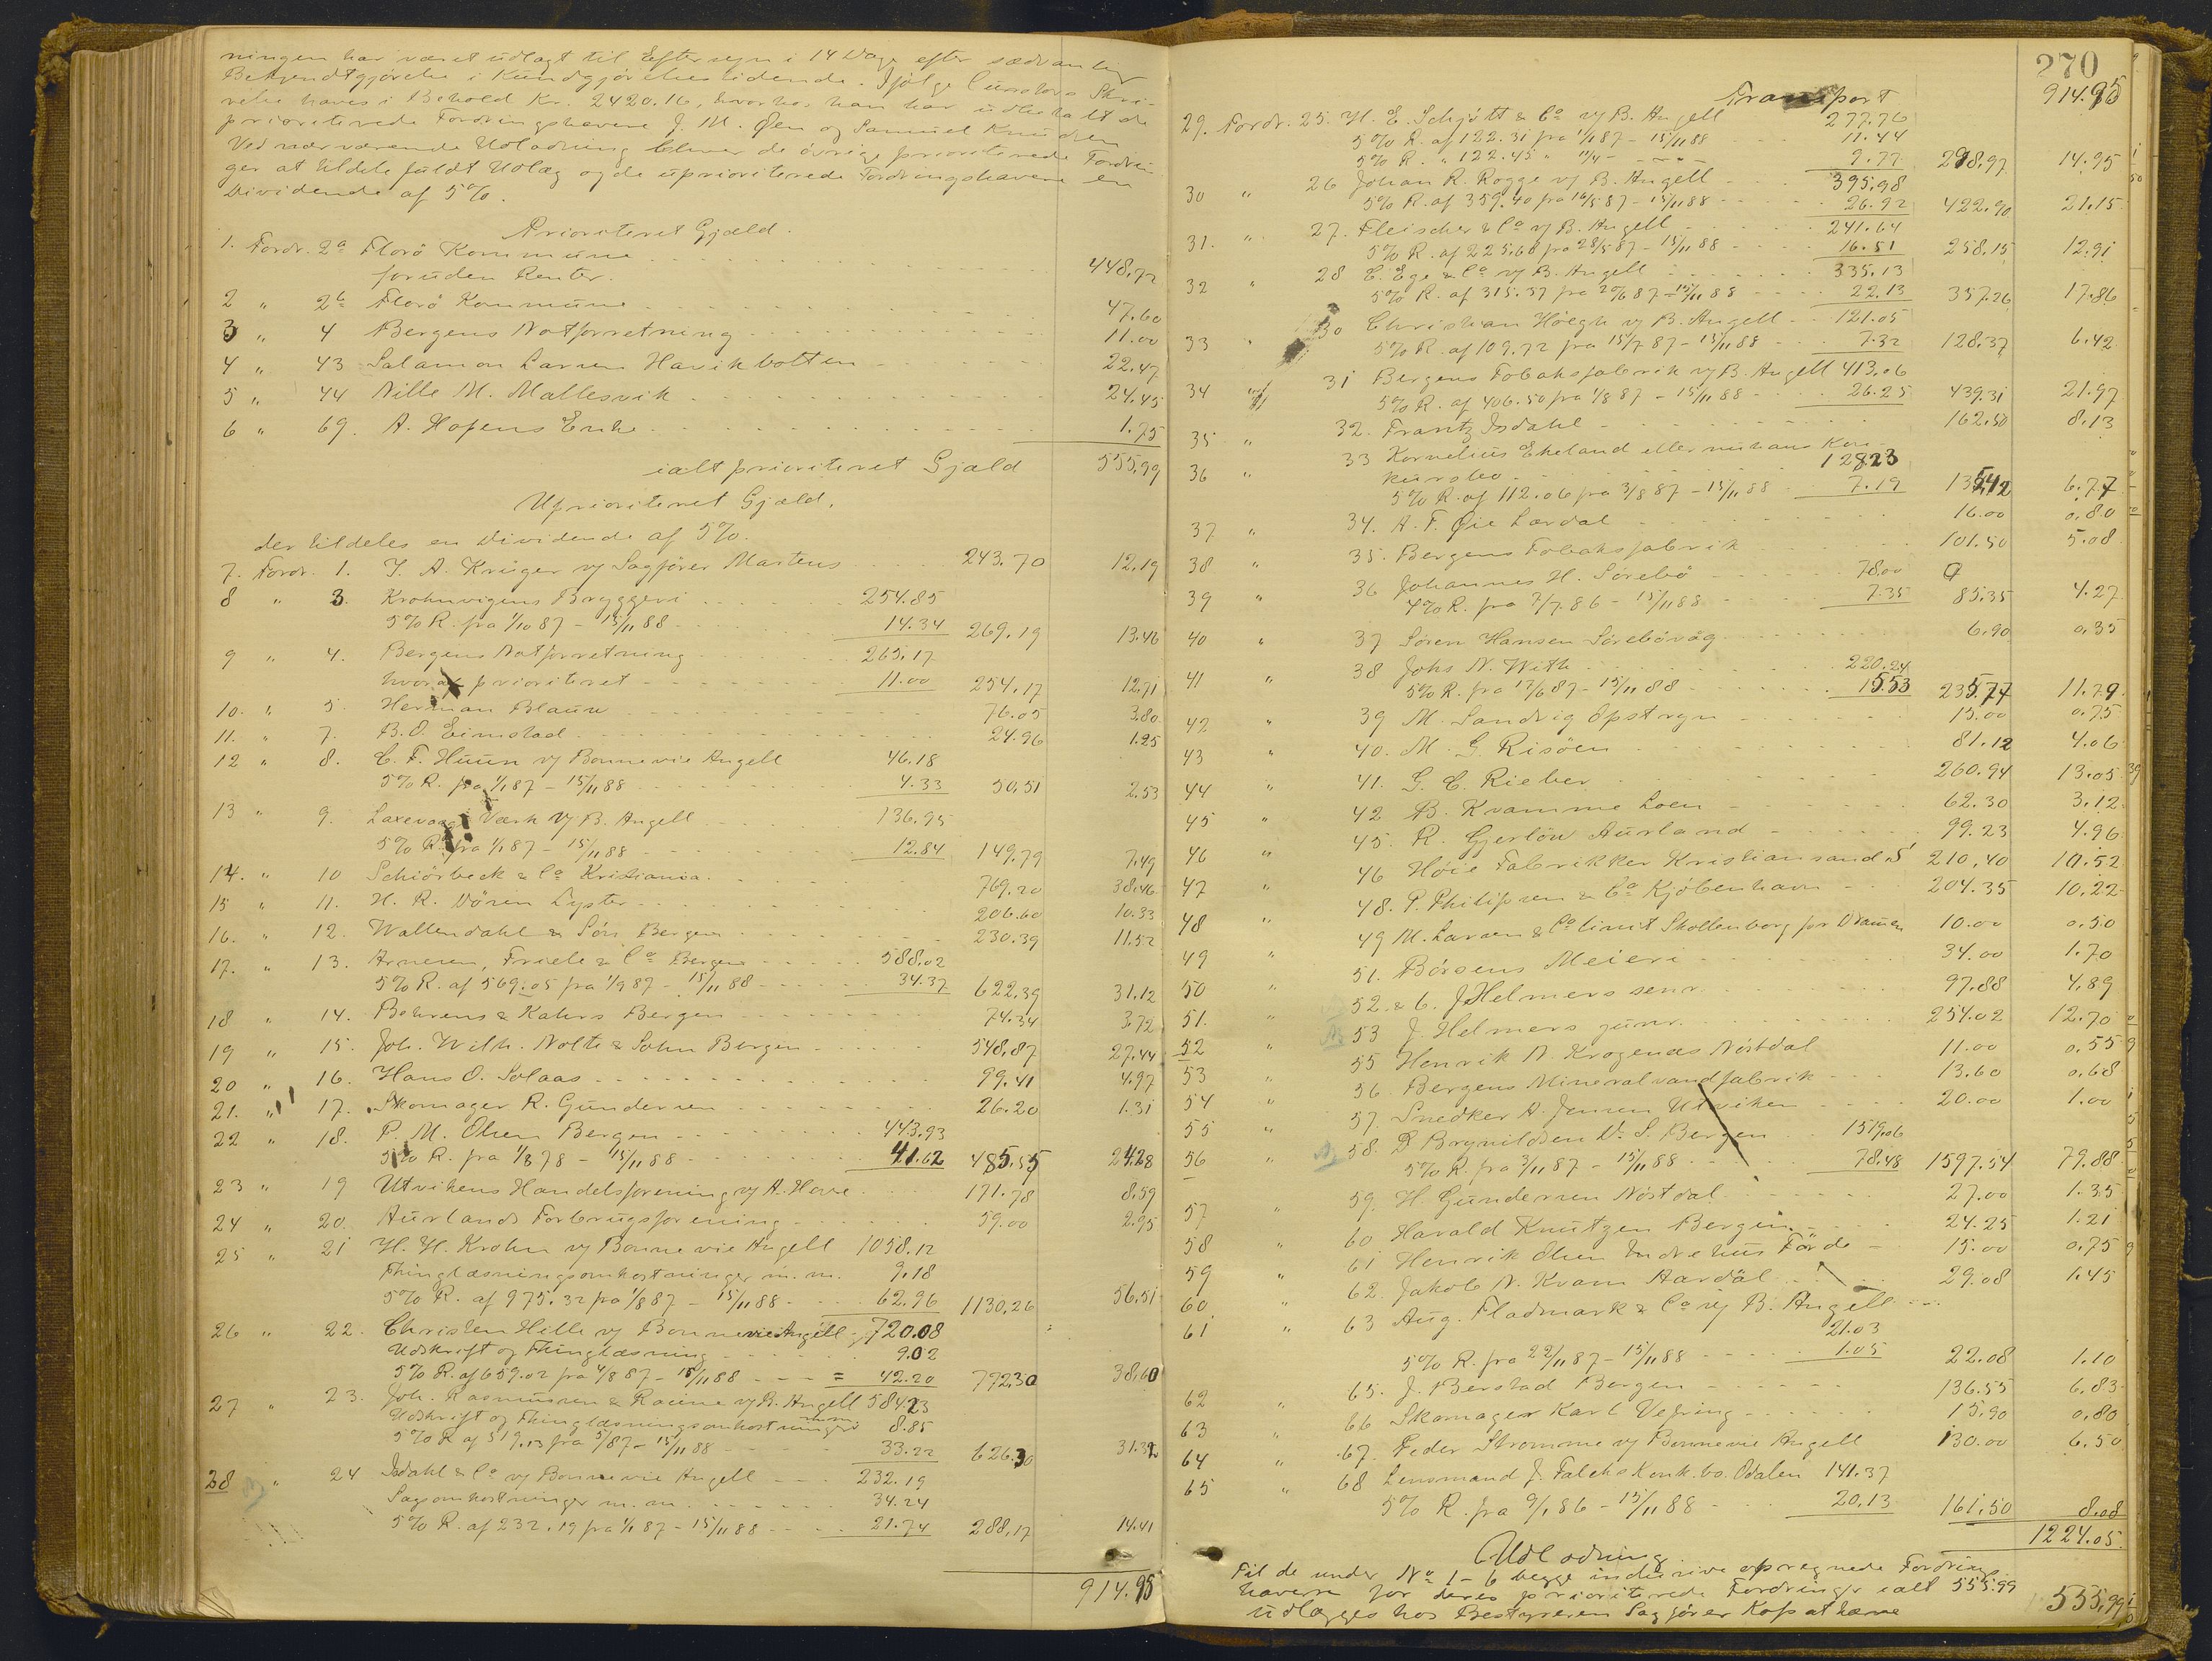 ningen har været udlagt til Eftersyn i 14 Dage efter sædvanlig
Bekjendtgjørelse i Kundgjørelsestidende. Ifølge Curators Skri-
velse haves i Behold Kr. 2420.16, hvorhos han har udbetalt de
prioriterede Fordringshavere J. M. Øen og Samuel Knudsen
Ved nærværende Udlodning bliver de øvrige prioriterede Fordrin
ger at tildele fuldt Udlæg og de uprioriterede Fordringshavere en
Dividende af 5%.
Prioriteret Gjæld.
1. Fordr. 2a Florö Kommune 448,72
foruden Renter.
2 " 2b Florö Kommune 47.60
3 " 4 Bergens Notforretning 11.00
4 " 43 Salamon Larsen Havikbotten 22.47
5 " 44 Nille M. Mallesvik 24.45
6 " 69. A. Hopens Enke 1.75
ialt prioriteret Gjæld 555,99
Uprioriteret Gjæld,
der tildeles en Dividende af 5%.
7. Fordr. 1. J. A. Krüger v/ Sagfører Martens 243.70 12,19
8 " 3. Krohnvigens Bryggeri 254.85
5% R. fra 1/10 87 - 15/11 88 14.34 269,19 13.46
9 " 4. Bergens Notforretning 265,17
hvoraf prioriteret 11.00 254,17 12,71
10. " 5. Herman Blauw 76.05 3,80
11. " 7. B. O. Eimstad 24.96 1.25
12 " 8. C. F. Huun v/ Bonnevie Angell 46.18
5% R. fra 1/1 87 - 15/11 88 4.33 50,51 2,53
13 " 9. Laxevaags Værk v/ B. Angell 136,95
5% R. fra 1/1 87 - 15/11 88 12.84 149,79 7,49
14. " 10 Schiörbeck & Co Kristiania. 769,20 38,46
15 " 11. H. R. Dören Lyster 206.60 10.33
16. " 12. Wallendahl & Sön Bergen 230.39 11.52
17. " 13. Arnesen, Friele & Co Bergen 588,02
5% R. af 569.05 fra 1/9 87 - 15/11 88 34.37 622.39 31.12
18 " 14. Behrens & Kahrs Bergen 74.34 3,72
19 " 15. Joh. Wilh. Nolte & Sohn Bergen 548,87 27,44
20 " 16. Hans O. Solaas 99.41 4.97
21. " 17. Skomager R. Gundersen 26.20 1.31
22 " 18. P. M. Olsen Bergen 443,93
5% R. fra 1/8 78 - 15/11 88 41.62 485,55 24.28
23 " 19 Utvikens Handelsforening v/ A. Hove 171.78 8,59
24 " 20. Aurlands Forbrugsforening 59.00 2.95
25 " 21 H. H. Krohn v/ Bonnevie Angell 1058.12
Thinglæsningsomkostninger m. m. 9,18
5% R. af 975.32 fra 1/8 87 - 15/11 88 62.96 1130,26 56,51
26 " 22. Christen Hille v/ Bonnevie Angell 720.08
Udskrift og Thinglæsning 9.02
5% R. af 659.02 fra 4/8 87 - 15/11 88 42.20 772,30 38,60
27 " 23. Joh. Rasmussen & Racine v/ B. Angell 584.23
Udskrift og Thinglæsningsomkostninger m.m. 8.85
5% R. af 519,13 fra 5/87 - 15/11 88 33.22 626.30 31.32
28 " 24 Isdahl & Co v/ Bonnevie Angell 232.19
Sagsomkostninger m. m. 34.24
5% R. af 232,19 fra 1/1 87 - 15/11 88 21.74 288,17 14.41
914.95
270
Transport 914.95
29. Fordr. 25. H. E. Schjött & Co v/ B. Angell 277.76
5% R. af 122.31 fra 1/1 87 - 15/11 88 11.44
5% R. " 122.45 " 11/4 - 9.77 298,97 14.95
30 " 26 Johan R. Rogge v/ B. Angell 395,98
5% R. af 359.40 fra 16/5 87 - 15/11 88 26.92 422.90 21.15
31. " 27. Fleischer & Co v/ B. Angell 241.64
5% R. af 225,68 fra 28/5 87 - 15/11 88 16.51 258.15 12.91
32 " 28 C. Ege & Co v/ B. Angell 335.13
5% R. af 315.57 fra 20/6 87 - 15/11 88 22.13 357.26 17.86
33 " 30 Christian Höegh v/ B. Angell 121.05
5% R. af 109,72 fra 15/7 87 - 15/11 88 7.32 128.37 6.42
34 " 31 Bergens Tobaksfabrik v/ B. Angell 413,06
5% R. af 406.50 fra 1/8 87 - 15/11 88 26.25 439.31 21.97
35 " 32. Frantz Isdahl 162.50 8.13
36 " 33 Kornelius Ekeland eller nu hans Kon-
kursbo 128.23
5% R. af 112.06 fra 3/8 87 - 15/11 88 7.19 135,42 6.77
37 " 34. A. F. Øie Lærdal 16.00 0,80
38 " 35. Bergens Tobaksfabrik 101.50 5.08
39 " 36 Johannes H. Sörebö 78.00
4% R. fra 7/7 86 - 15/11 88 7.35 85.35 4.27
40 " 37 Sören Hansen Sörebövåg 6.90 0.35
41 " 38 Johs N. With 220.24
5% R. fra 17/6 87 - 15/11 88 15.53 235.77 11.79
42 " 39 M. Sandvig Opstryn 15.00 0.75
43 " 40. M. G. Risöen 81.12 4.06
44 " 41. G. C. Rieber 260.94 13.05
45 " 42 B. Kvamme Loen 62.30 3.12
46 " 45. R. Gjerlöw Aurland 99.23 4.96
47 " 46 Höie Fabrikker Kristiansand S 210,40 10.52
48 " 48. P. Philipsen & Co Kjöbenhavn 204.35 10.22
49 " 49 M. Larsen & Co limit Skollenborg pr Dramen 10.00 0.50
50 " 51. Börsens Meieri 34.00 1.70
51. " 52. & 6. J Helmers senr. 97.88 4.89
52 " 53 J. Helmers junr. 254.02 12.70
53 " 55 Henrik N. Krogenæs Nöstdal 11.00 0,55
54 " 56. Bergens Mineralvandfabrik 13.60 0,68
55 " 57. Snedker A. Jensen Utviken 20.00 1.00
56 " 58. B Brynildsen D. S. Bergen 1519.06
5% R. fra 3/11 87 - 15/11 88 78.48 1597.54 79.88
57 " 59. H. Gundersen Nöstdal 27.00 1.35
58 " 60 Harald Knutzen Bergen 24.25 1.21
59 " 61 Henrik Olsen Indrehus Förde 15.00 0.75
60 " 62. Jakob N. Kvam Aardal 29.08 1.45
61 " 63 Aug. Fladmark & Co v/ B. Angell
21.03
5% R. fra 22/11 87 - 15/11 88 1.05 22.08 1.10
62 " 65. J. Berstad Bergen 136.55 6,83
63 " 66 Skomager Karl Vefring 15.90 0.80
64 " 67. Peder Strømme v/ Bonnevie Angell 130.00 6.50
65 " 68 Lensmand J. Falcks Konk. bo. Odalen 141.37
5% R. fra 9/1 86 - 15/11 88 20.13 161.50 8.08
1224.05.
Udlodning.
Til de under No 1-6 begge inclusive opregnede Fordrings
havere for deres prioriterede Fordringer ialt 555.99
udlægges hos Bestyreren Sagfører Koss at hæve 555,99